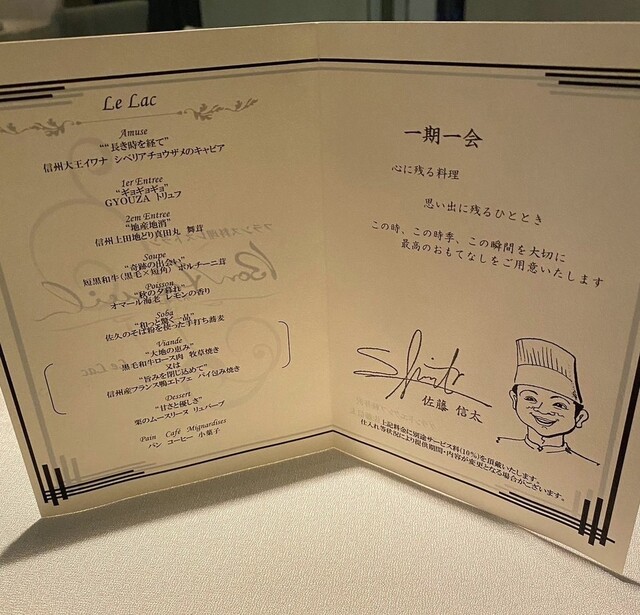 Le Lac
Amuse
““長き時を経て”
信州大王イワナ シベリアチョウザメのキャビア
1er Entree
“ギョギョギョ”
GYOUZA トリュフ
2em Entree
“地産地消”
信州上田地どり真田丸 舞茸
Soupe
“奇跡の出会い”
短黒和牛(黒毛×短角) ポルチーニ茸
Poisson
“秋の夕暮れ”
オマール海老 レモンの香り
Soba
“和っと驚く一品”
佐久のそば粉を使った手打ち蕎麦
Viande
“大地の恵み”
黒毛和牛ロース肉 牧草焼き
又は
“旨みを閉じ込めて”
信州産フランス鴨エトフェ パイ包み焼き
Dessert
“甘さと優しさ”
栗のムースリーヌ リュバーブ
Pain Café Mignardises
パン コーヒー 小菓子
一期一会
心に残る料理
思い出に残るひととき
この時、この時季、この瞬間を大切に
最高のおもてなしをご用意いたします
佐藤 信太
上記料金に別途サービス料(10%)を頂戴いたします。
仕入れ等状況により提供期間・内容が変更となる場合がございます。